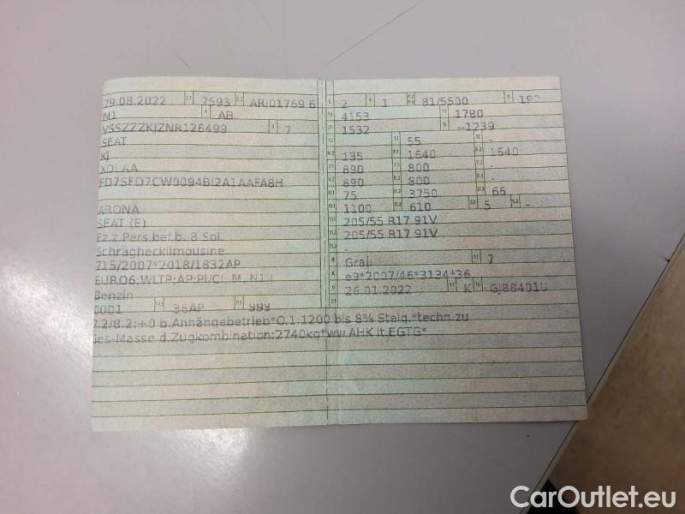 29.08.2022 7593 ARJ01769 6
M1 AB
VSSZZZKJZNR126499 7
SEAT
KJ
XDLAA
FD7SFD7CW0094BI2A1AAFA8H
ARONA
SEAT (E)
Fz.z.Pers.bef.b. 8 Spl.
Schräghecklimousine
715/2007*2018/1832AP
EURO6;WLTP;AP;PI/CI, M, N1 I
Benzin
0001 36AP 999
7.2/8.2:+0 b.Anhängebetrieb*O.1:1200 bis 8% Steig.*techn.zu
Ges-Masse d.Zugkombination:2740kg*ww.AHK lt.EGTG*
2 1 81/5500
4153 1780
1532 -1239
- 55 -
135 1640 1640
890 800 -
890 800 -
75 3750 65
1100 610 5 -
205/55 R17 91V
205/55 R17 91V
-
Grau 7
e9*2007/46*3134*36
26.01.2022 K
CarOutlet.eu